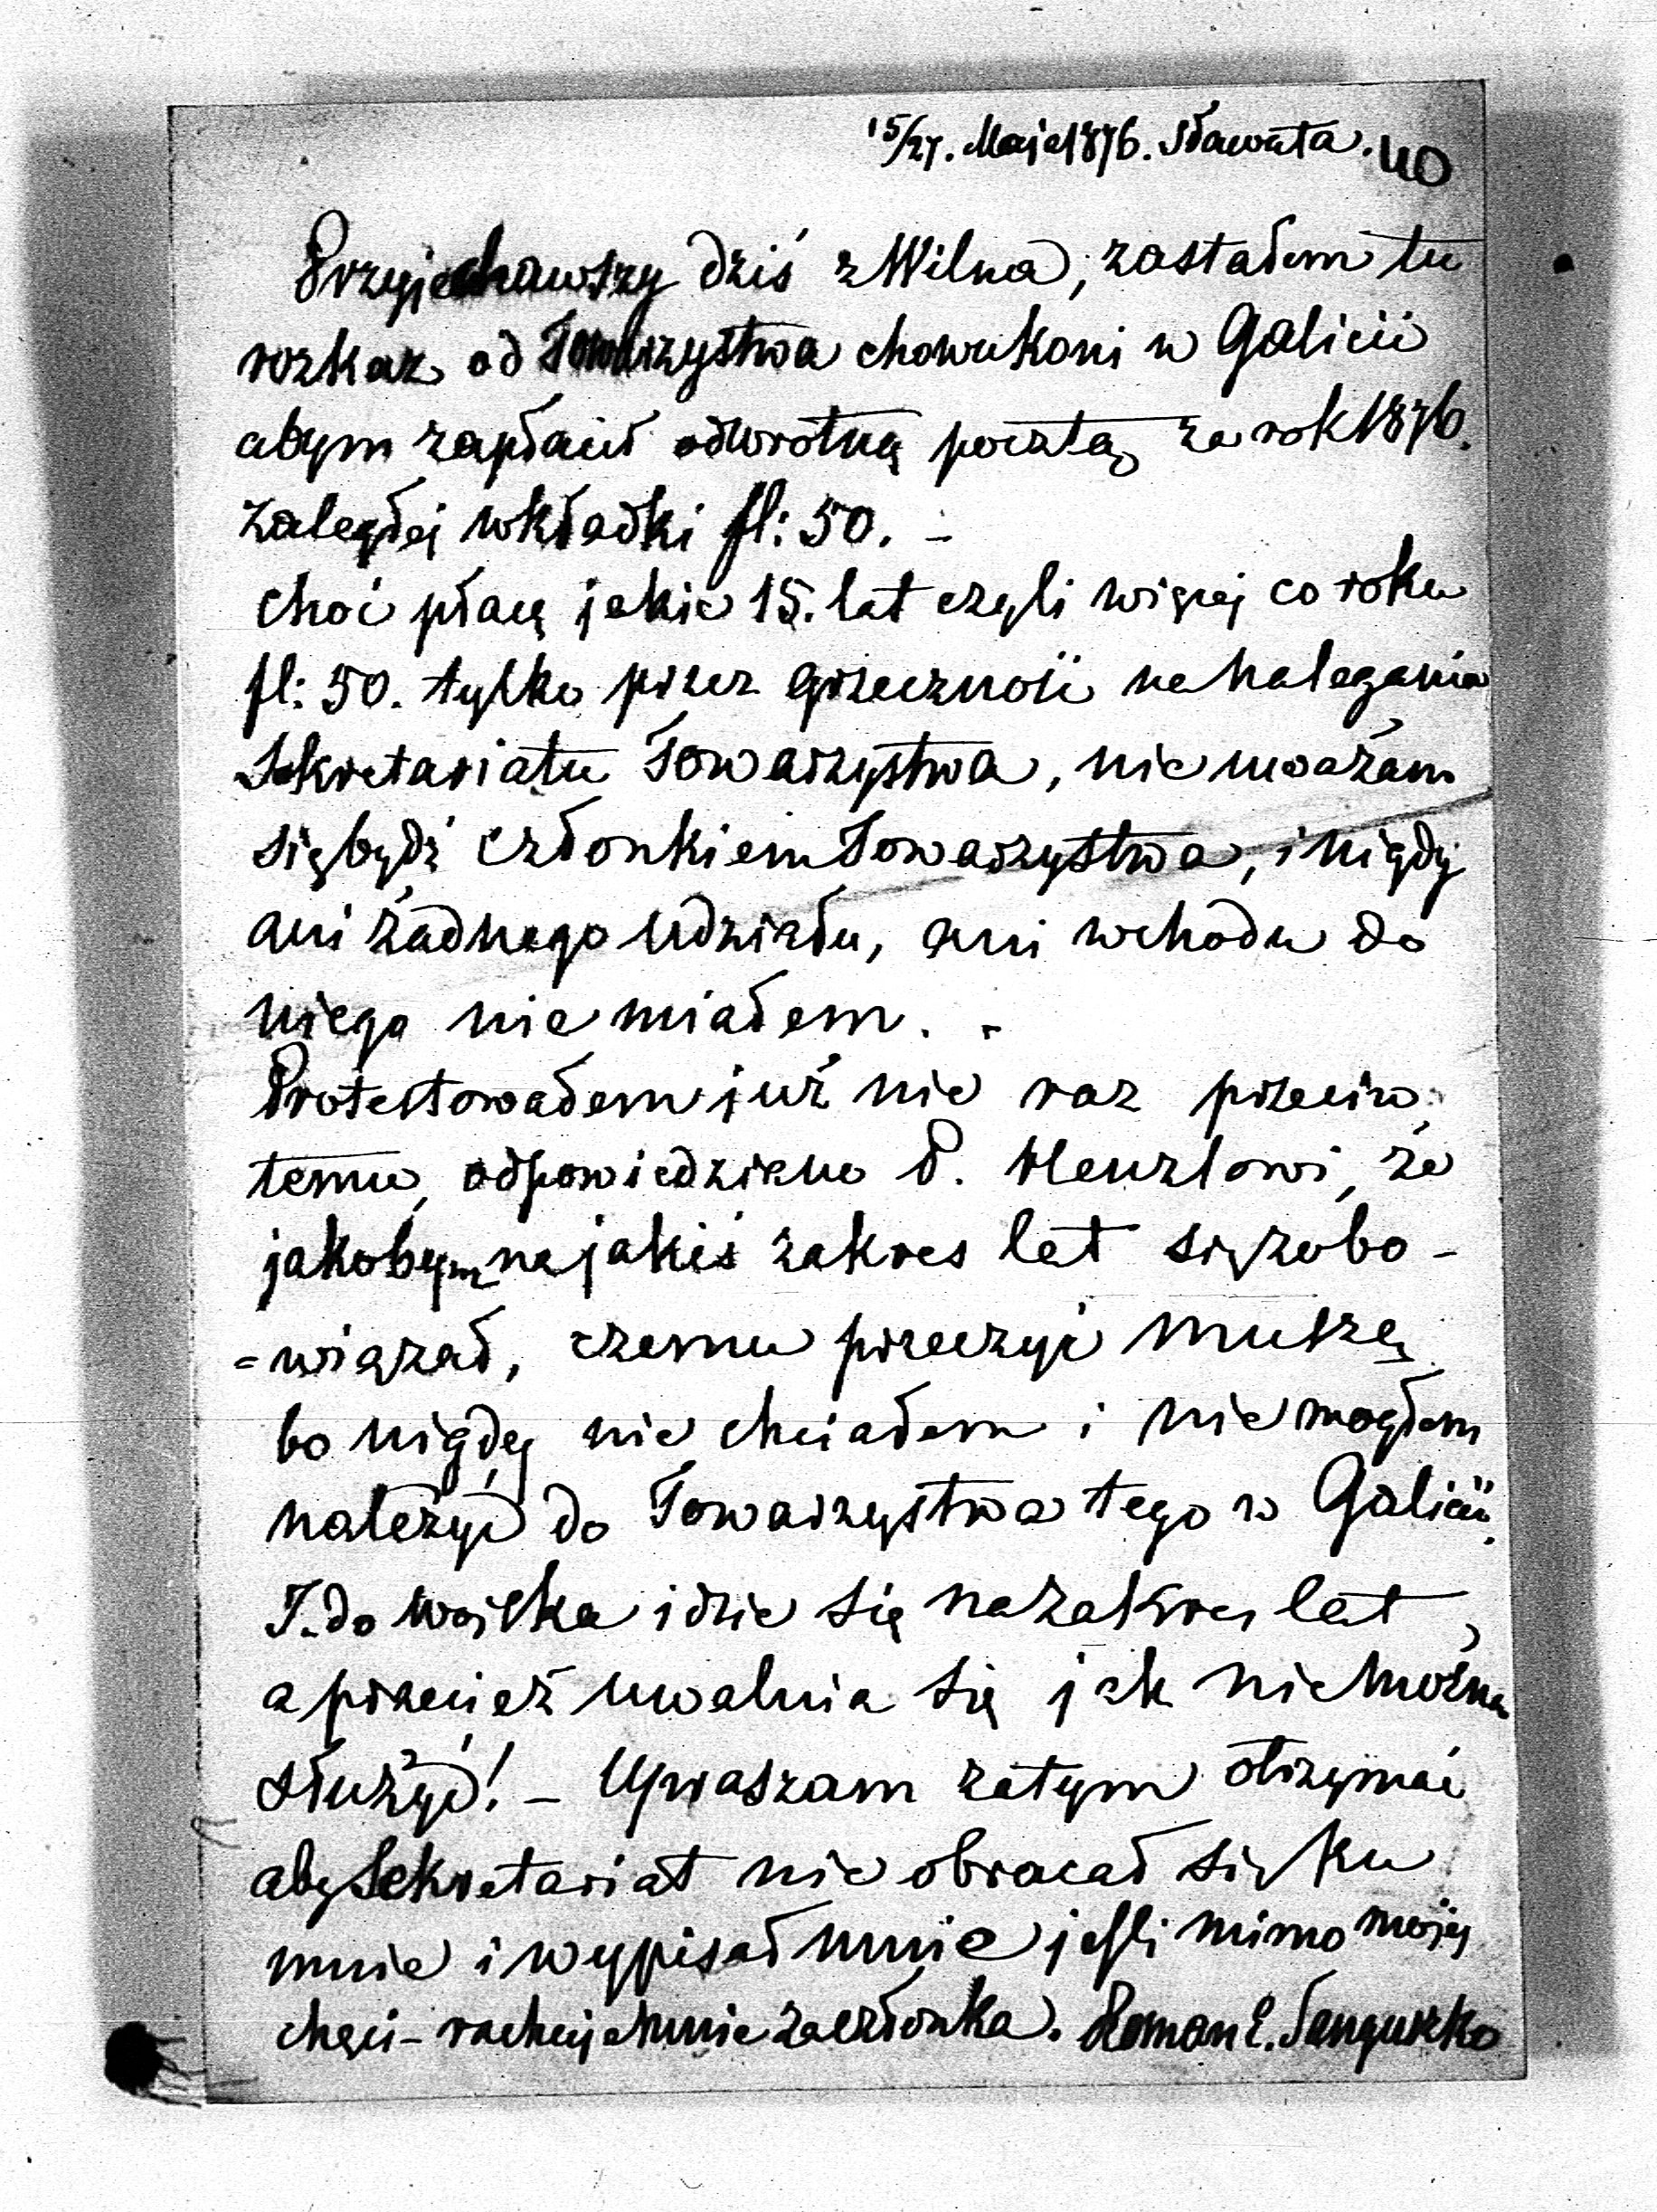 15/27. Maja 1876. Sławuta. 40
Przyjechawszy dziś z Wilna, zastałem tu
rozkaz od Towarzystwa chowu koni w Galicii
abym zapłacił odwrotną pocztą za rok 1876.
zaległej wkładki fl: 50. -
choć płacę jakie 15. lat czyli więcej co roku
fl: 50. tylko przez grzeczność na nalegania
Sekretariatu Towarzystwa, nie uważam
się bydź członkiem Towarzystwa, i nigdy
ani żadnego udziału, ani wchodu do
niego nie miałem. -
Protestowałem już nie raz przeciw
temu, odpowiedziano P. Henzlowi, że
jakobym na jakiś zakres lat się zobo-
=wiązał, czemu przeczyć muszę
bo nigdy nie chciałem i nie mogłem
należyć do Towarzystwa tego w Galicii.
I do wojska idzie się na zakres lat,
a przecież uwalnia się jak nie można
służyć! - Upraszam zatym otrzymać
aby Sekretariat nie obracał się ku
mnie i wypisał mnie jeśli mimo mojej
chęci - rachuje mnie za członka. Roman S. Sanguszko